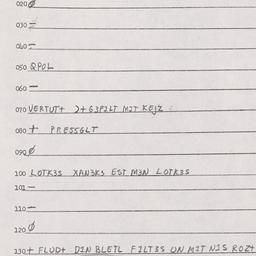 020 Ø
030 =
040 =
050 QPOL
060 —
070 VERTUT+ MIT KEJZ
080 + PRESSGLT
090 Ø
100 LOTK3S XAN3KS EST M3N LOTK3S
101 —
110 =
120 Ø
130 + FLUD+ DIN BLETL FILT3S UN MIT NIS ROZ+